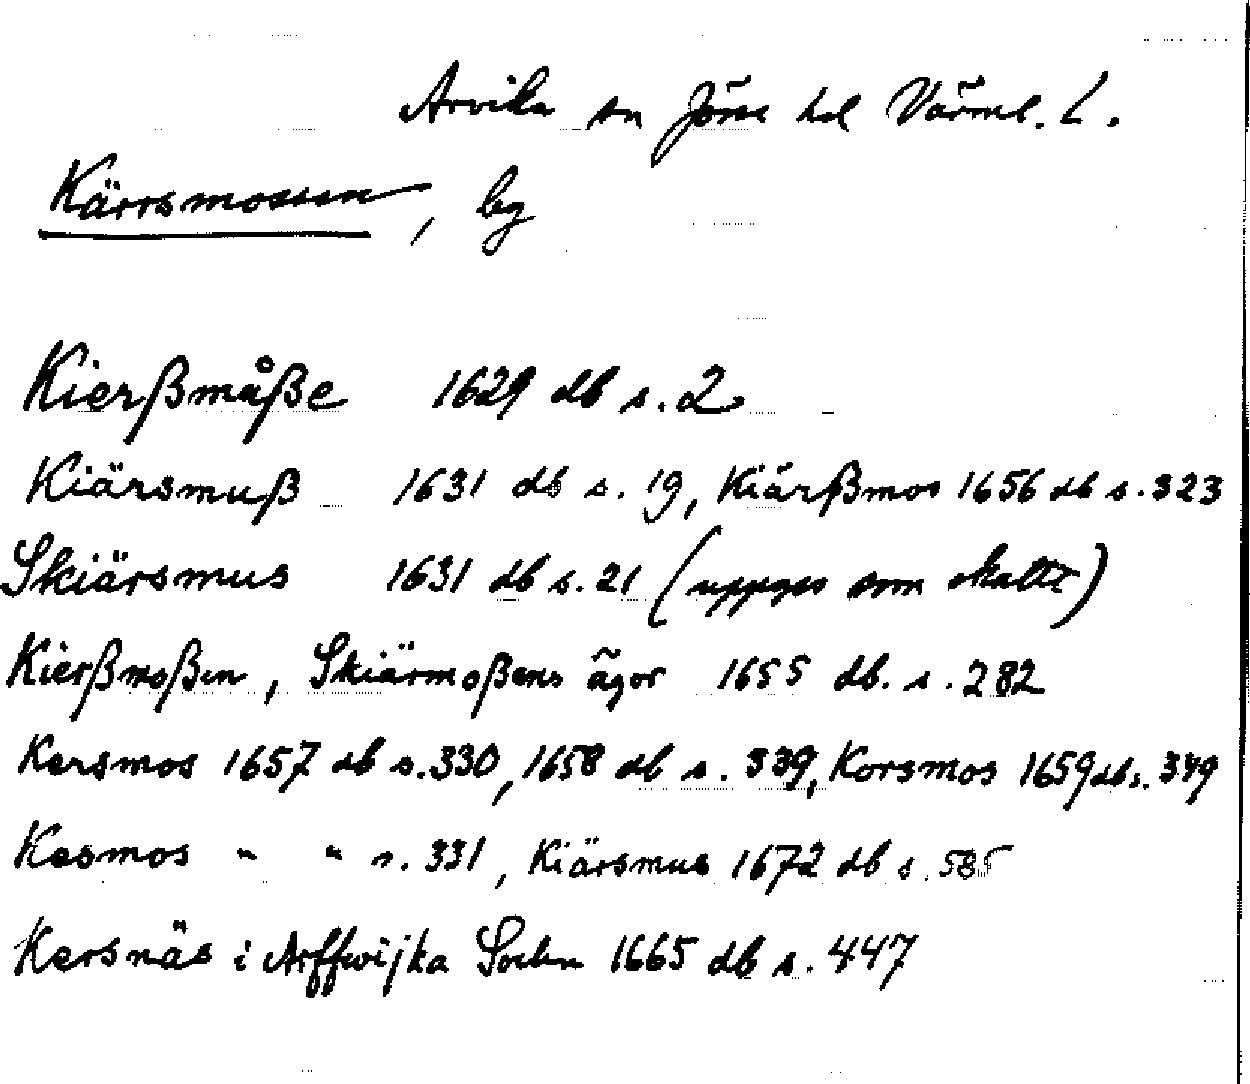 Arvika sn Jösse hd Värml. L.
Kärrsmossen, by
Kierßmåße 1629 db s. 2
Kiärsmuß 1631 db s. 19, Kiärßmos 1656 db s. 323
Skiärsmus 1631 db s. 21 (uppges som skatte)
Kierßmoßen, Skiärmoßens ägor 1655 db. s. 282
Kersmos 1657 db s. 330, 1658 db s. 339, Korsmos 1659 db s. 349
Kesmos " " s. 331, Kiärsmus 1672 db s. 585
Kersnäs i Arffwijka Sochn 1665 db s. 447